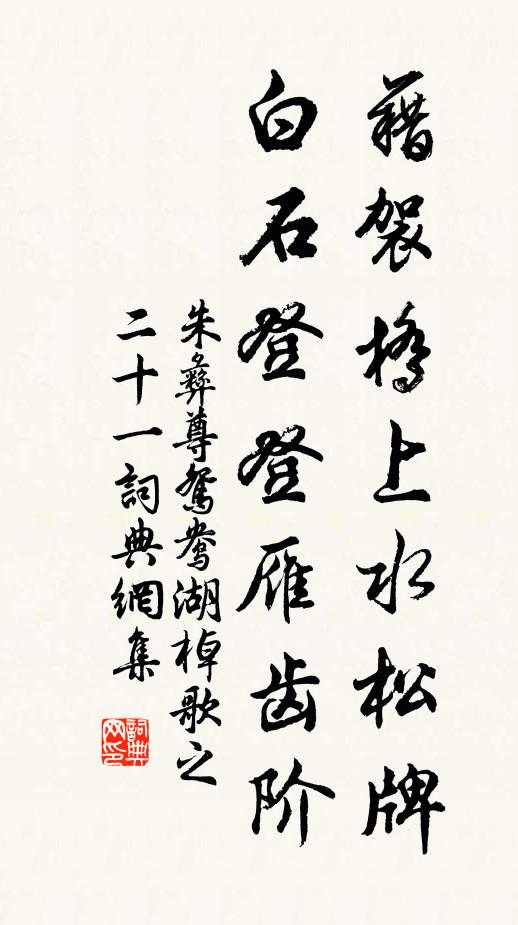 藉袈橋上水松牌
白石登登雁齿阶
朱彝尊鴛鸯湖棹歌之
二十一詞典網集
詞典
网印